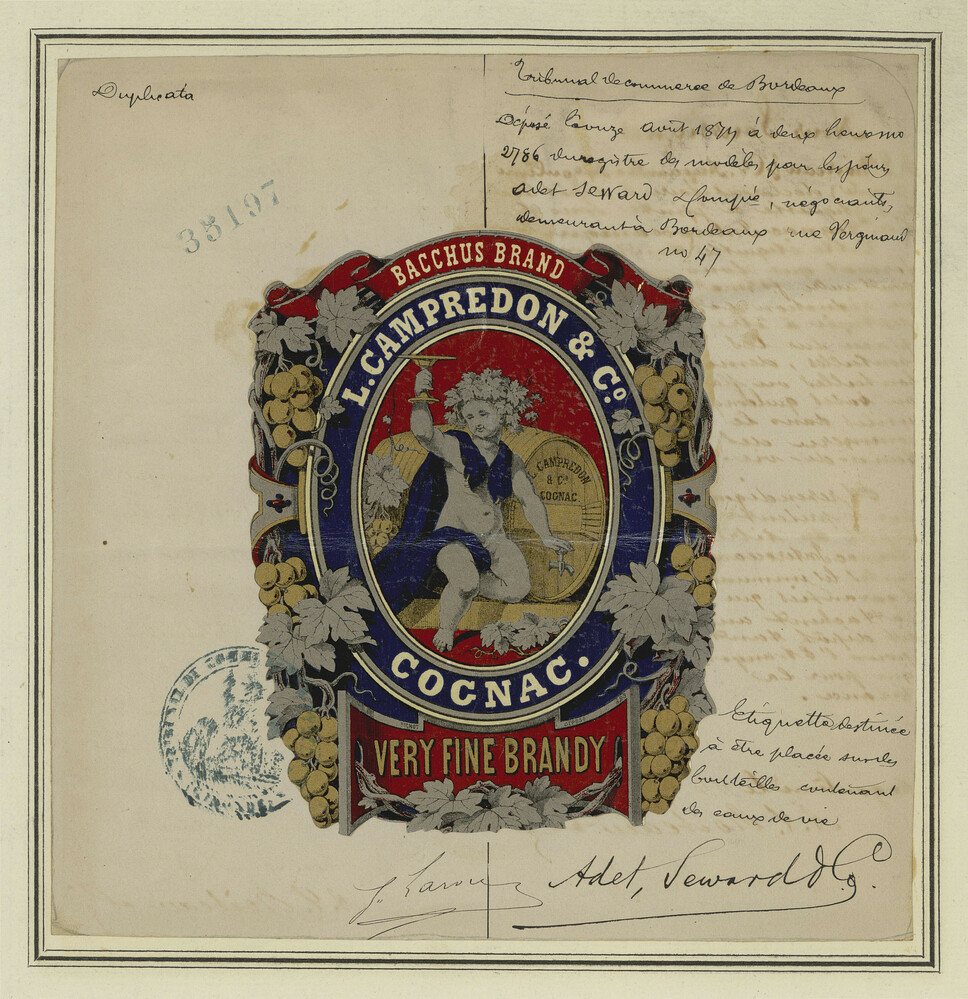 Duplicata
Tribunal de commerce de Bordeaux
Déposé le onze août 1874 à deux heures no
2786 du registre des modèles pour les sieurs
Adet Seward & Compie, négociants,
demeurant à Bordeaux rue Vergniaud
no 47
35197
BACCHUS BRAND
L. CAMPREDON & Co.
L. CAMPREDON
& Co
COGNAC
COGNAC.
VERY FINE BRANDY
TRIBUNAL DE COM
Etiquette destinée
à être placée sur les
bouteilles contenant
des eaux de vie
Adet, Seward & Co.